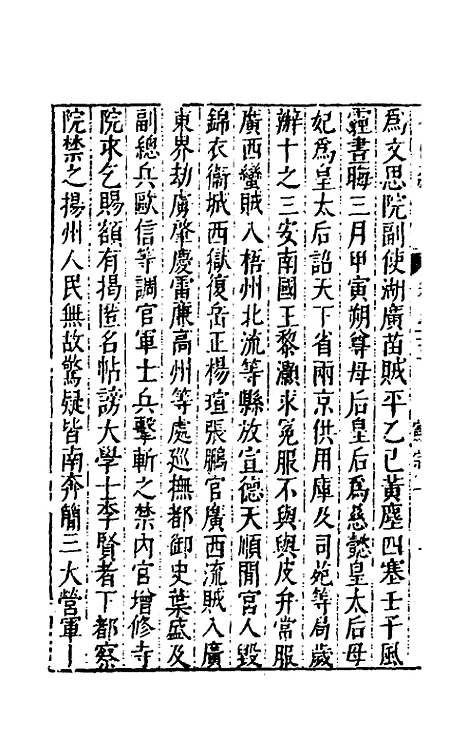 為文思院副使湖廣苗賊平乙巳黃塵四塞壬午風
霾晝晦三月甲寅朔尊母后皇后為慈懿皇太后母
妃為皇太后詔天下省兩京供用庫及司苑等局歲
辦十之三安南國王黎灝求冕服不與與皮弁常服
廣西蠻賊入梧州北流等縣放宣德天順間宮人毀
錦衣衞城西獄復岳正楊瑄張鵬官廣西流賊入廣
東界劫廣肇慶雷廉高州等處巡撫都御史葉盛及
副總兵歐信等調官軍士兵擊斬之禁內官增修寺
院求乞賜額有揭匿名帖謗大學士李賢者下都察
院禁之揚州人民無故驚疑皆南奔簡三大營軍